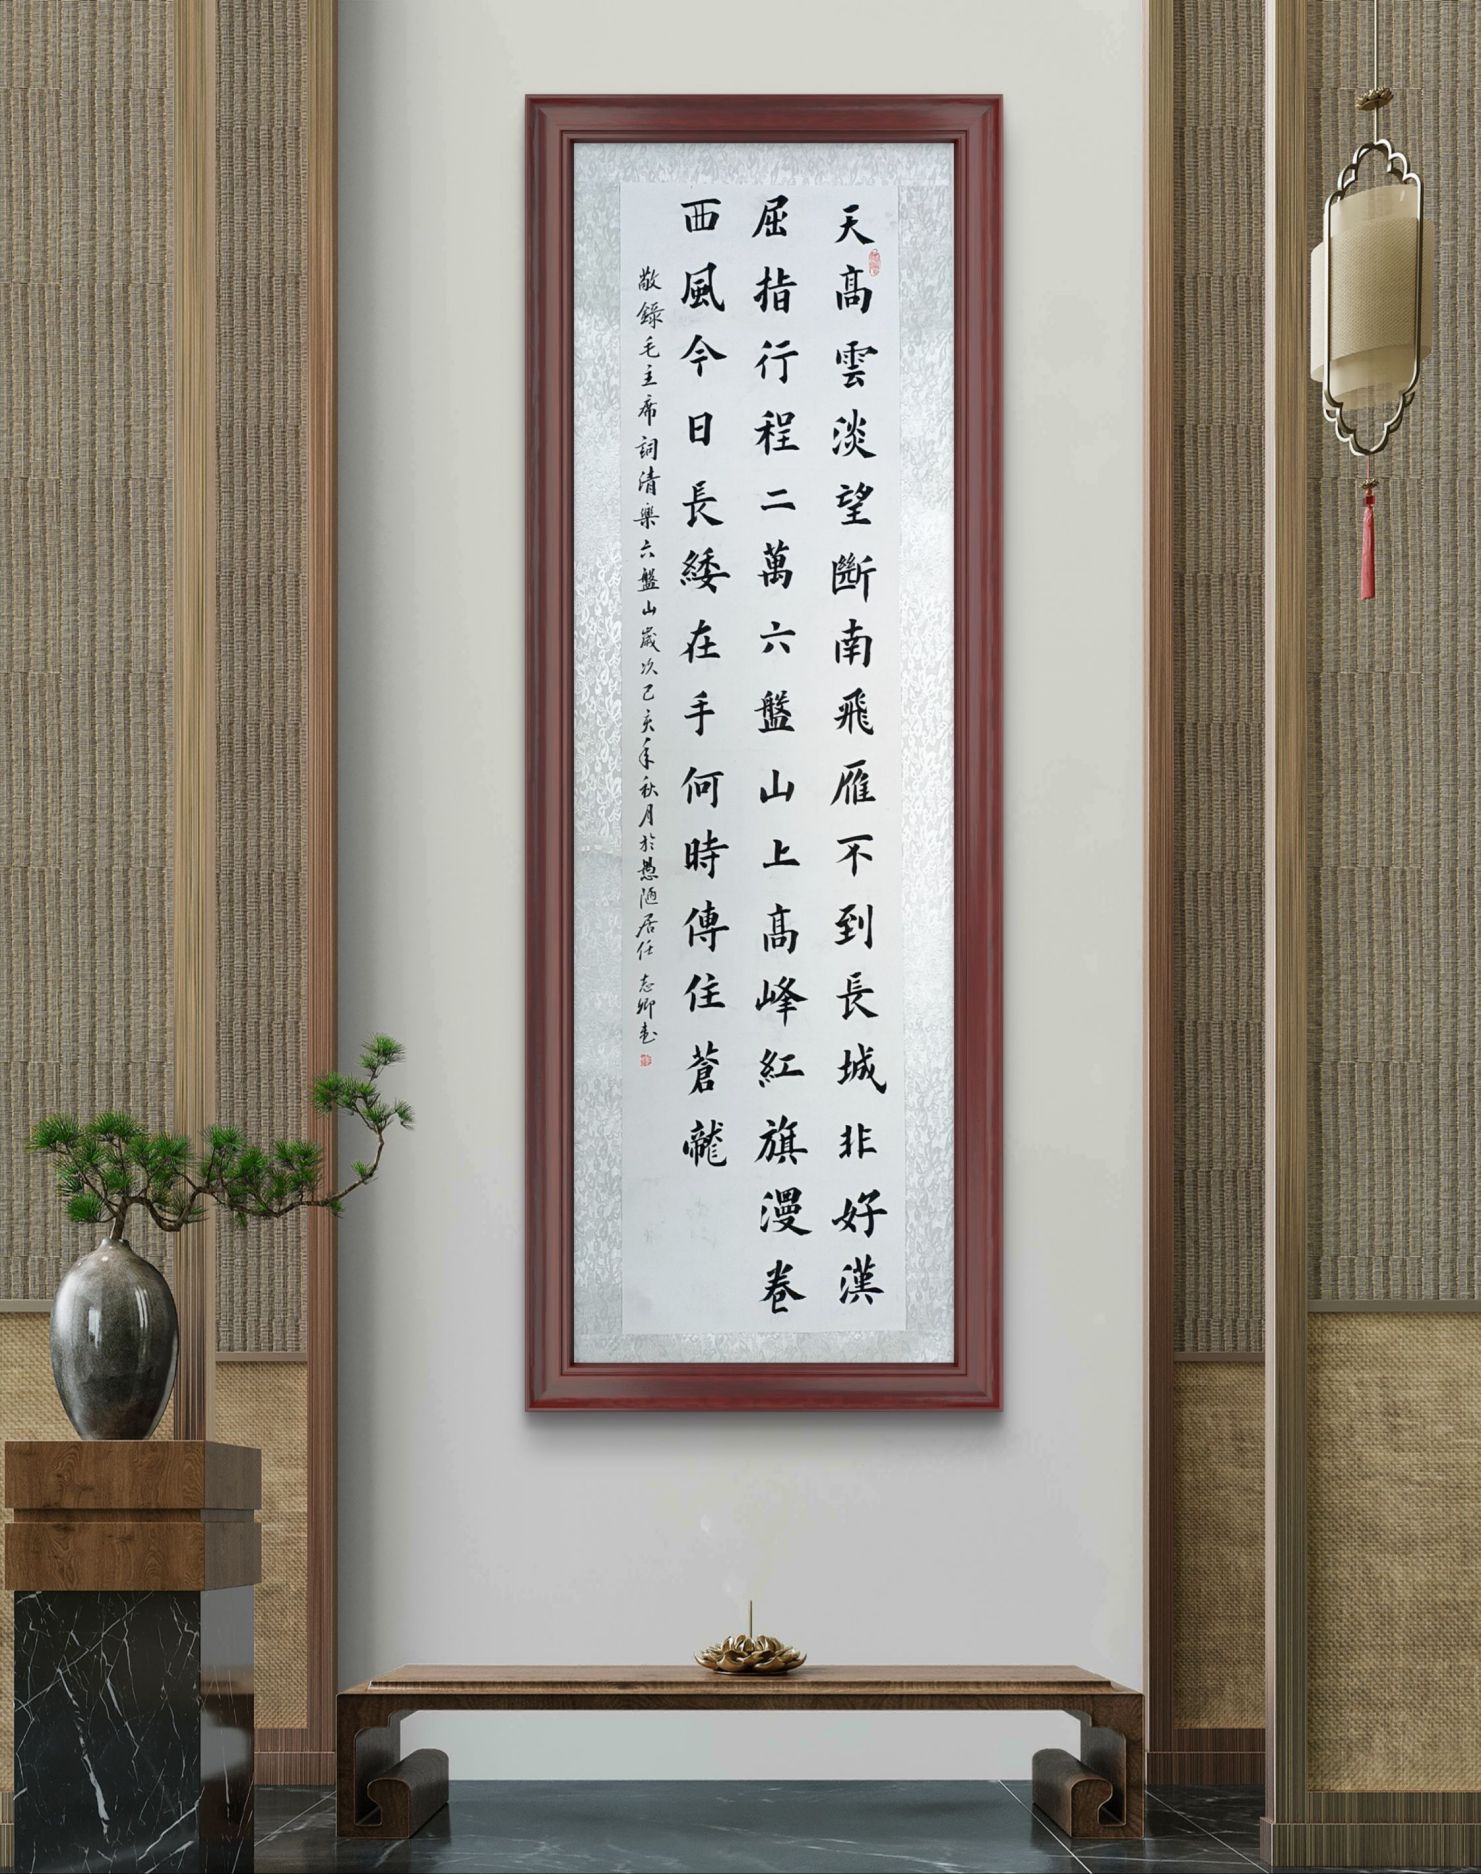 天髙雲淡望斷南飛雁不到長城非好漢
屈指行程二萬六盤山上髙峰紅旗漫卷
西風今日長緌在手何時傳住蒼龍
敬錄毛主席詞清樂六盤山歲次己亥年秋月於愚陋居任志卿書